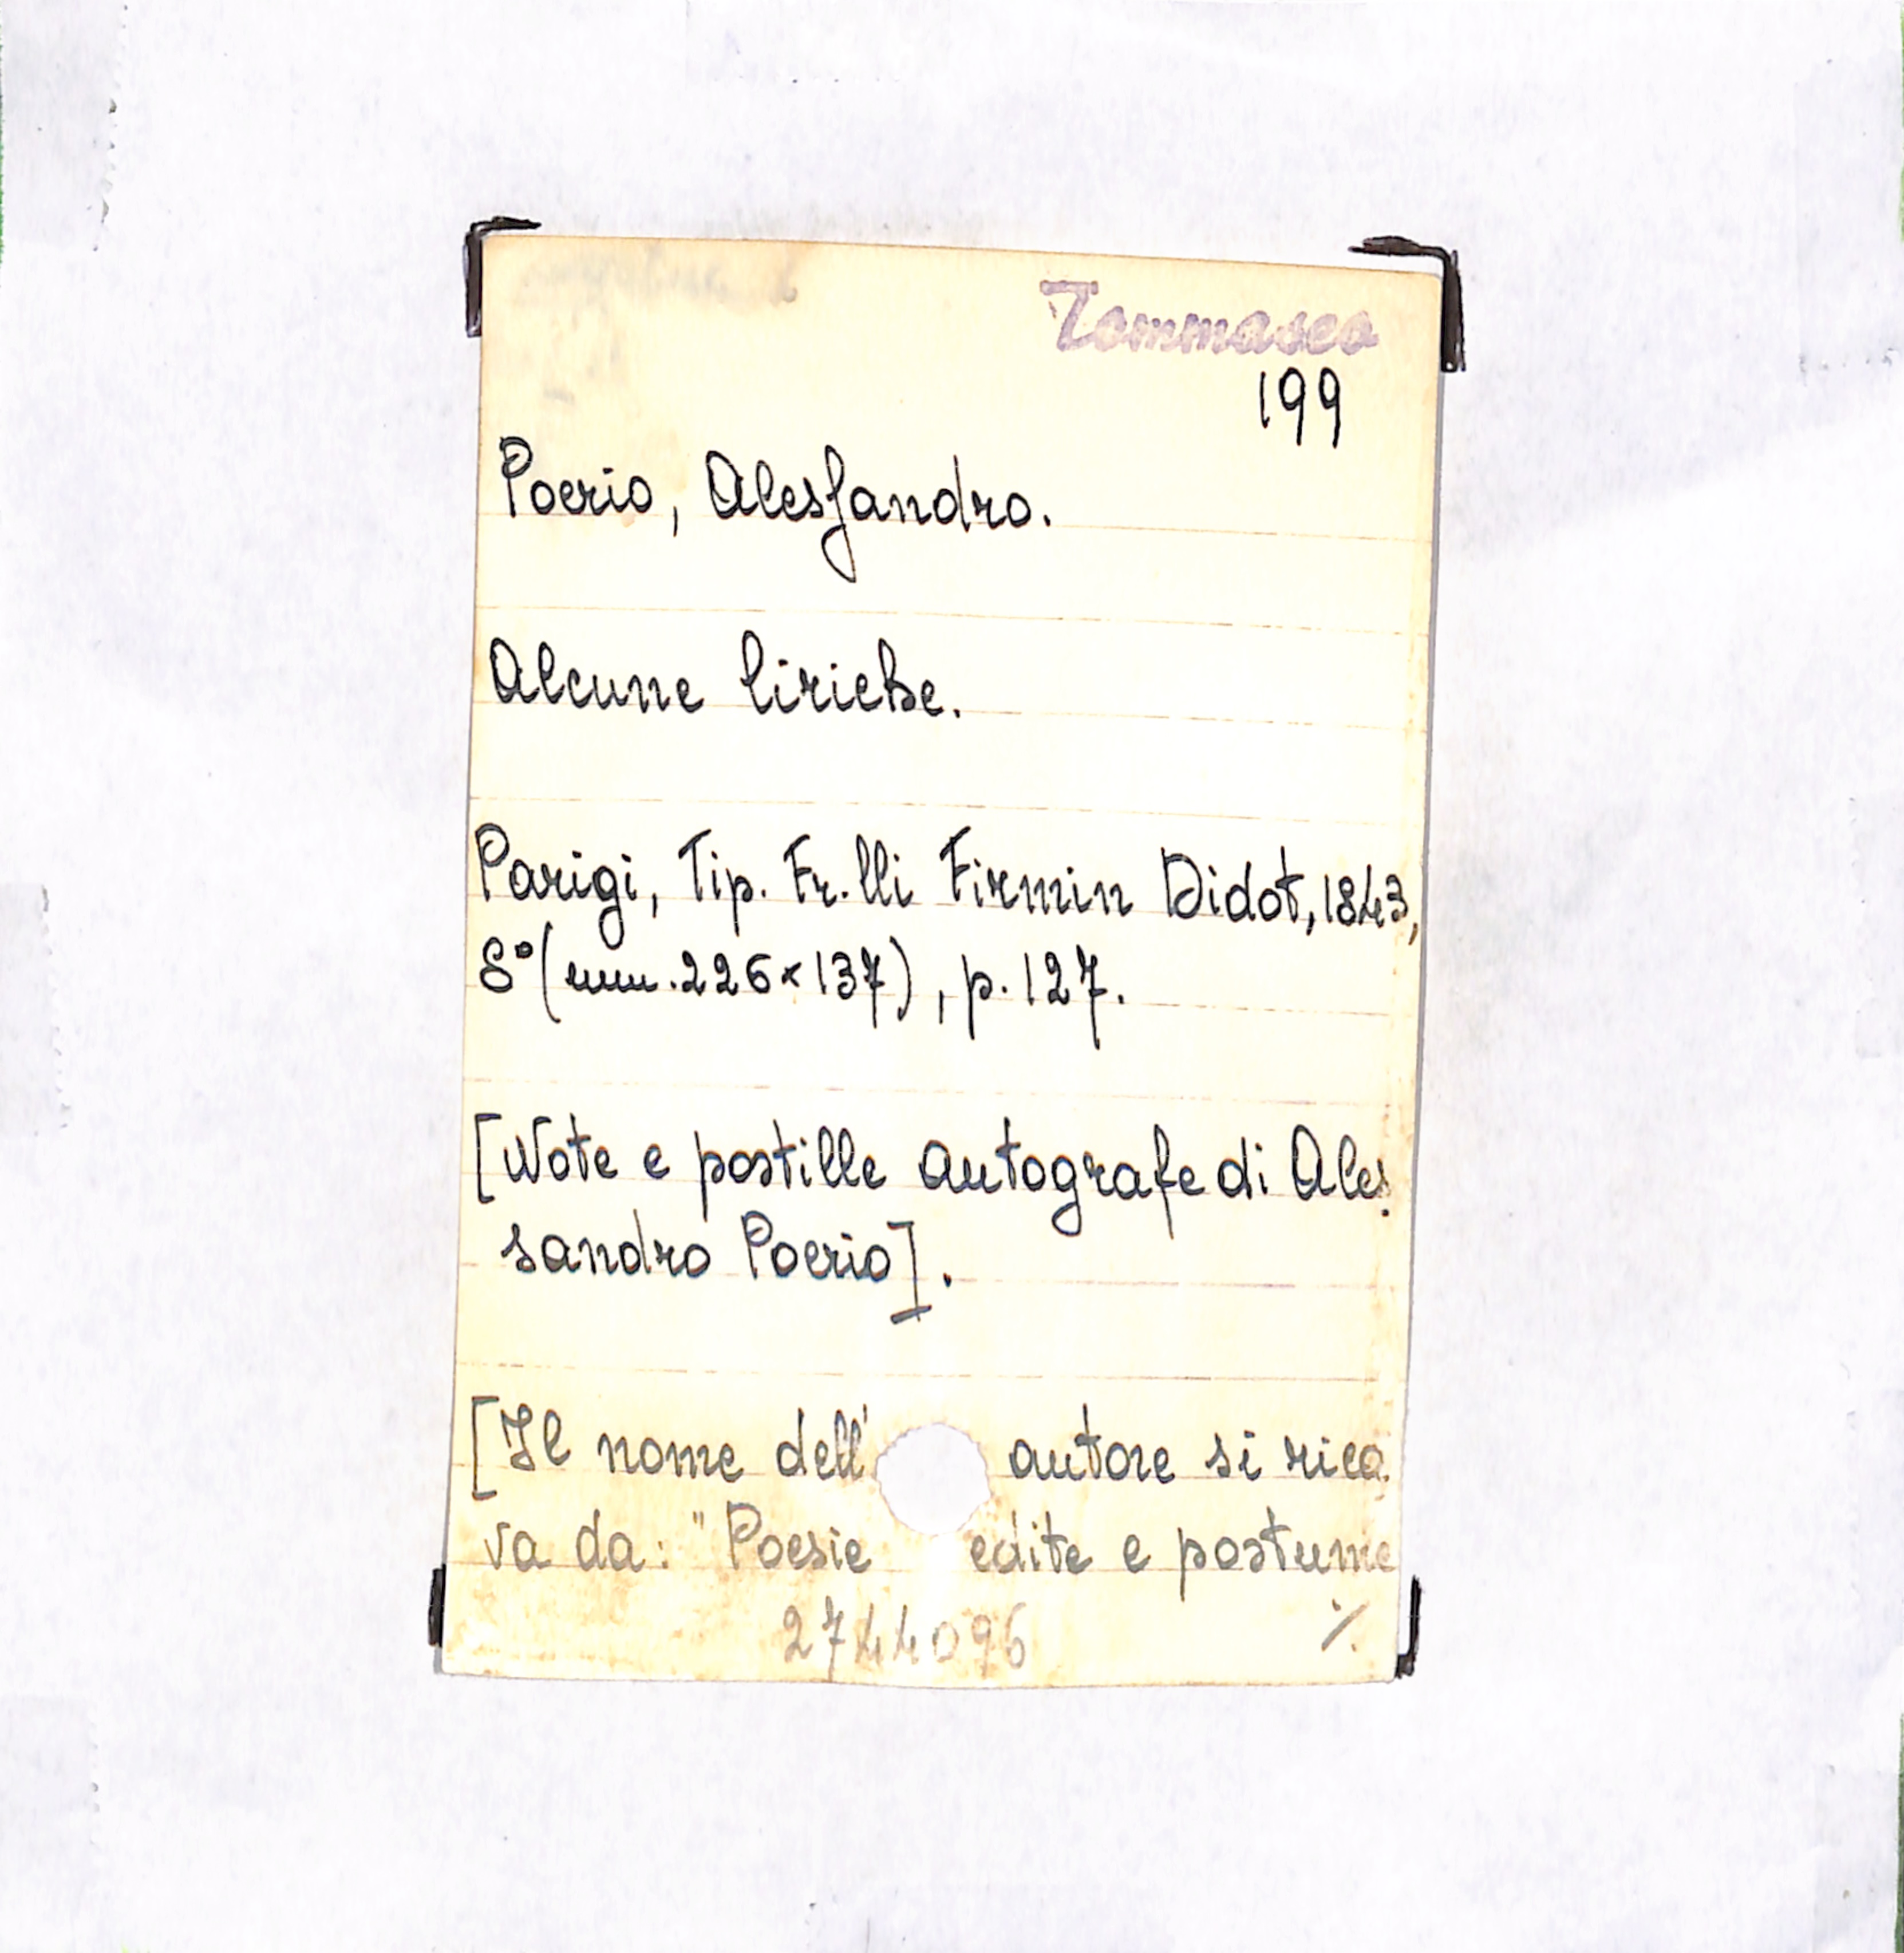 Tommaseo
199
Poerio, Alessandro.
Alcune liriche.
Parigi, Tip. Fr.lli Firmin Didot, 1843,
8° (mm. 226 x 137), p. 127.
[Note e postille autografe di Ales
sandro Poerio].
[Il nome dell' autore si rica
va da: "Poesie edite e postume
2744096 ./.